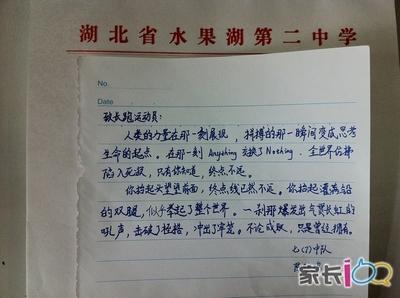 湖北省水果湖第二中学
No.
Date
致长跑运动员:
人类的力量在那一刻展现,拼搏的那一瞬间变成思考
生命的起点。在那一刻Anything变换了Nothing.全世界仿佛
陷入死寂,只有你知道,终点不远。
你抬起头望望前面,终点线已然不远。你抬起灌满铅
的双腿,似乎举起了整个世界。一刹那爆发出气贯长虹的
吼声,击破了桎梏,冲出了牢笼。不论成败,只是曾经拥有。
七(7)中队
家长100